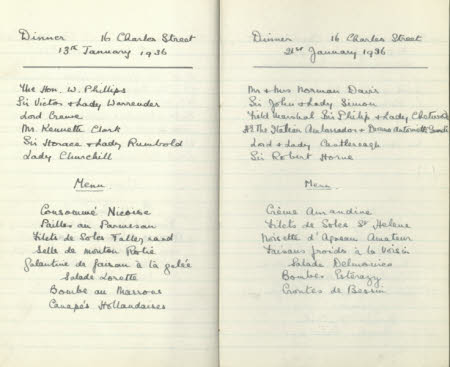 Dinner 16 Charles Street
13th January 1936
The Hon. W. Phillips
Sir Victor + Lady Warrender
Lord Crewe
Mr. Kenneth Clark
Sir Horace + Lady Rumbold
Lady Churchill
Menu
Consommé Nicoise
Pailles au Parmesan
Filets de Soles Talleyrand
Selle de mouton Rotie
Galantine de faisan à la gelée
Salade Lorette
Bombe au Marrons
Canapés Hollandaises
Dinner 16 Charles Street
21st January 1936
Mr + Mrs Norman Davis
Sir John + Lady Simon
Field Marshal Sir Philip + Lady Chetwode
The Italian Ambassador + Donna Antoinette
Lord + Lady Castlereagh
Sir Robert Horne
Menu
Crème Amandine
Filets de Soles St Helene
Noisette d'Agneau Amateur
Faisans froids à la Voisin
Salade Delmonico
Bombes Esterazy
Croutes de